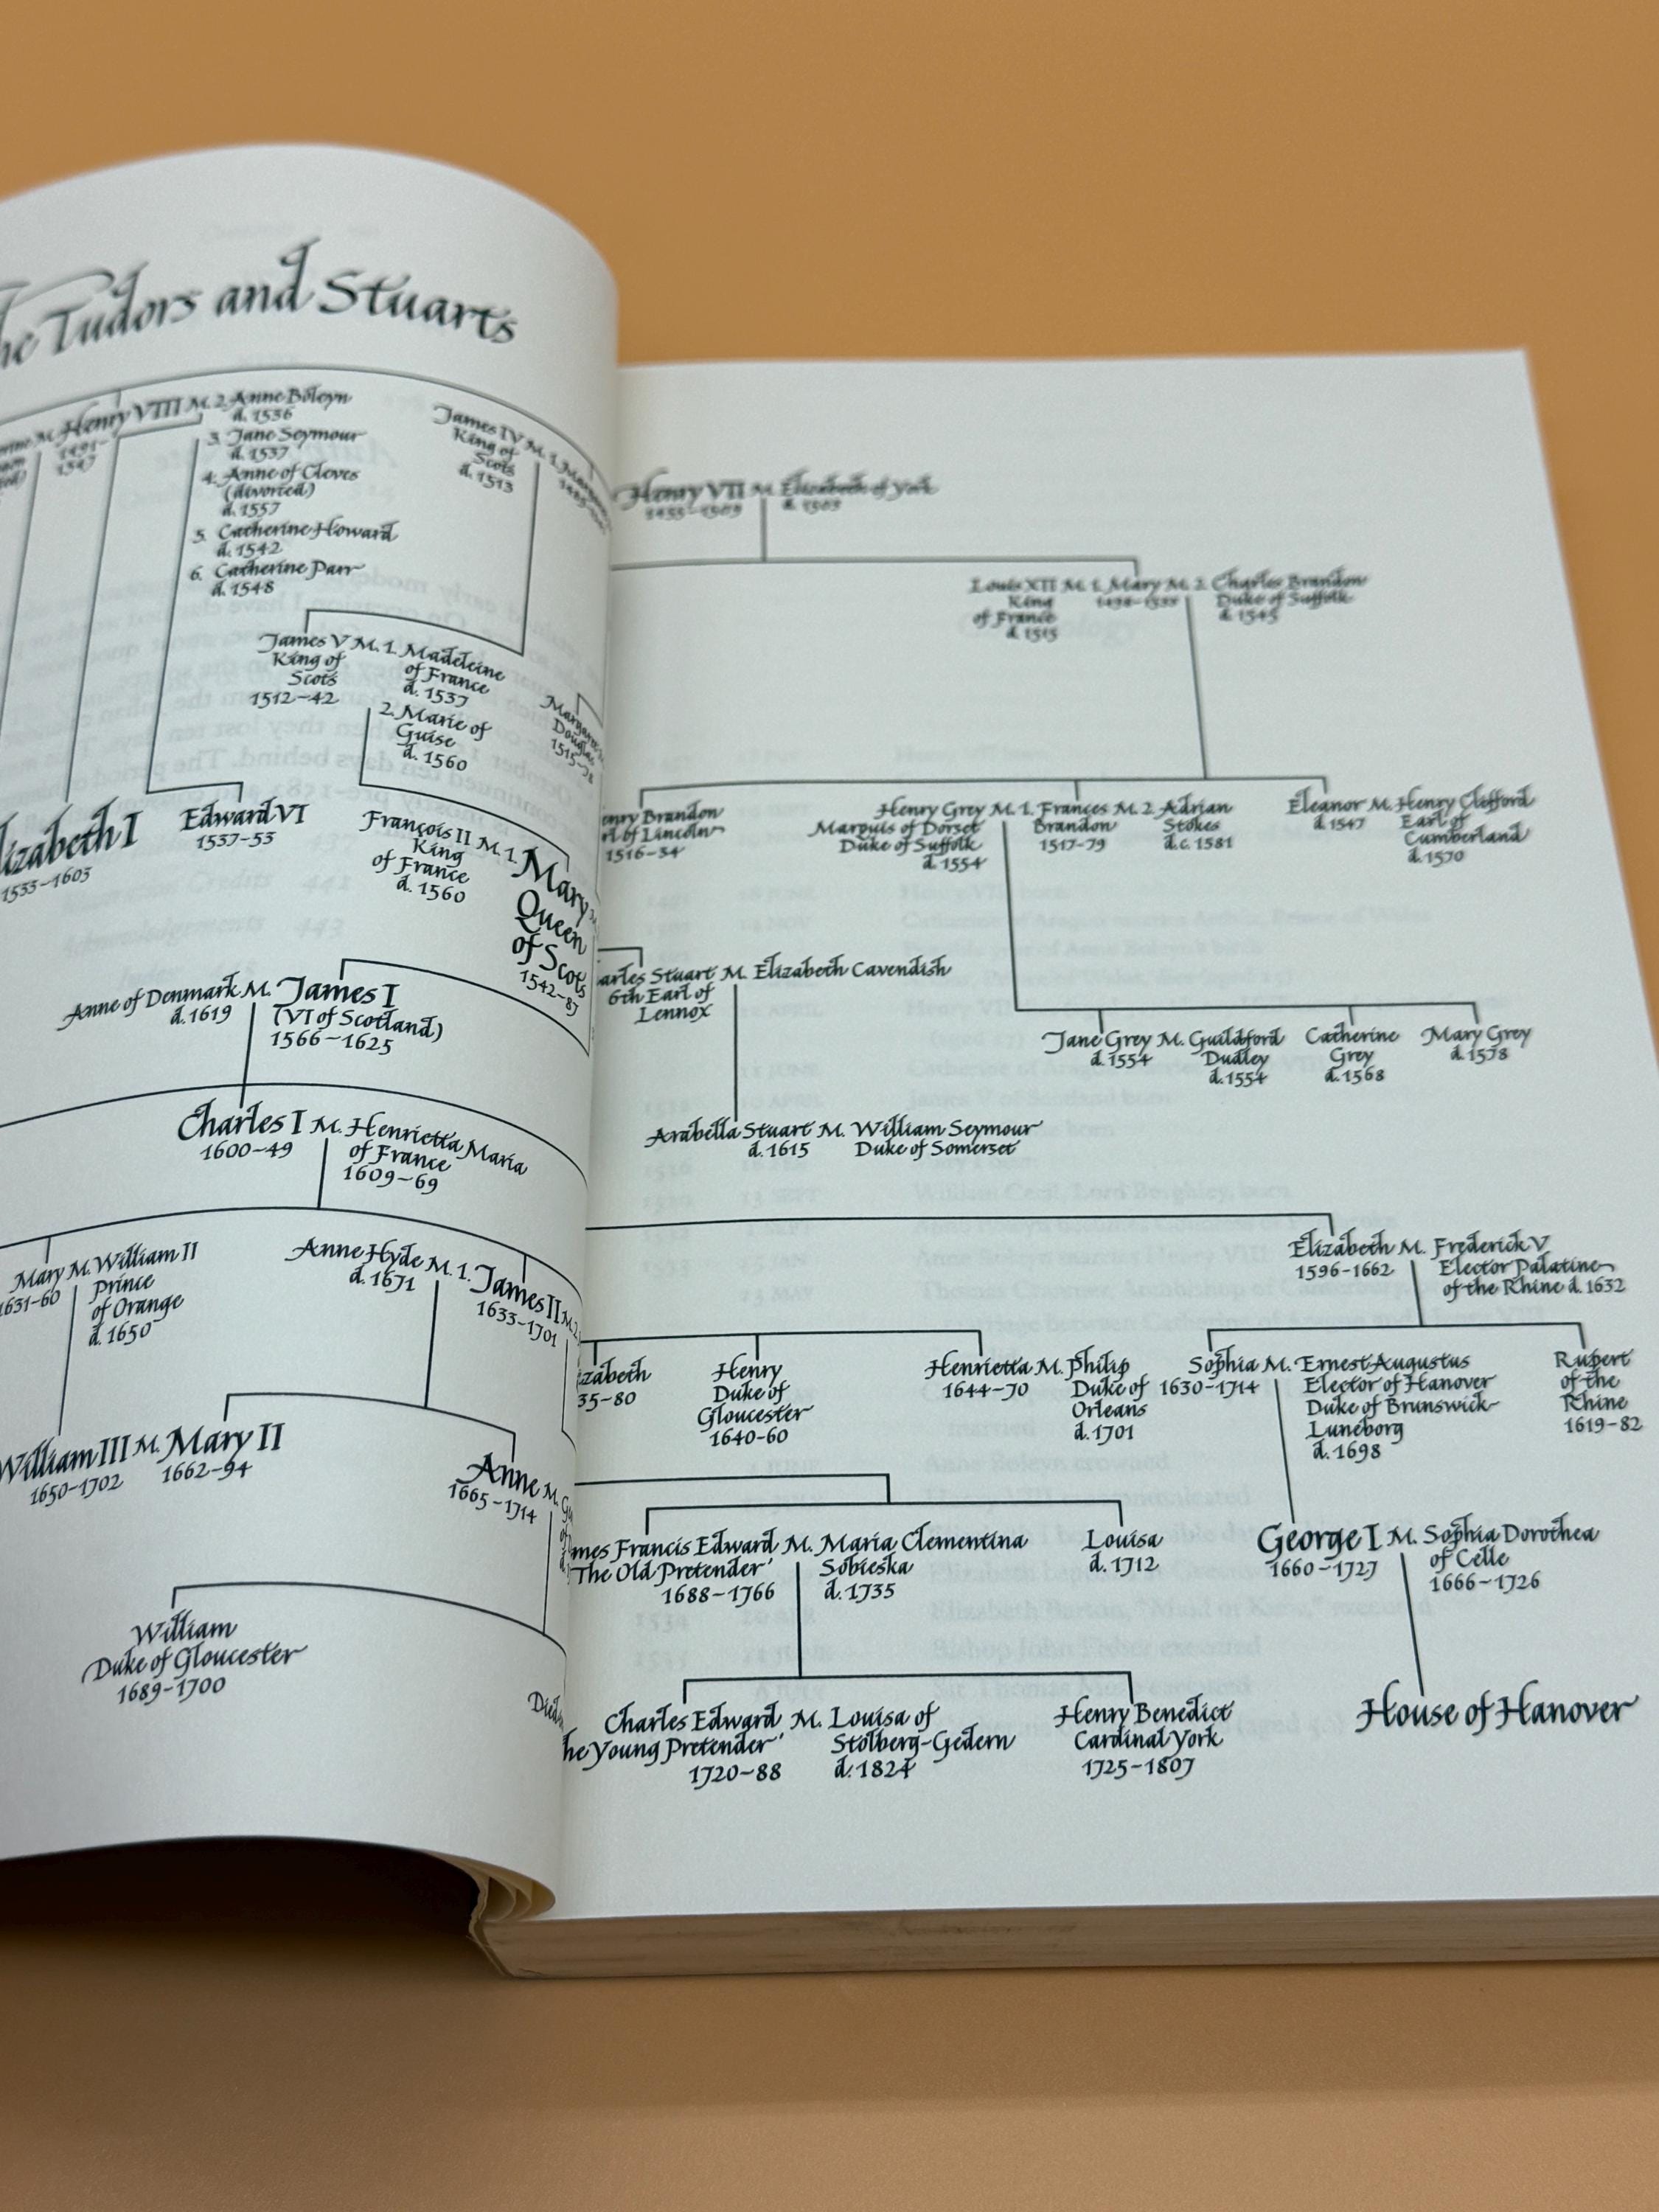 he Tudors and Stuarts
Henry VIII M. 2. Anne Boleyn
d. 1536
1491-
1547
3. Jane Seymour
d. 1537
4. Anne of Cleves
(divorced)
d. 1557
5. Catherine Howard
d. 1542
6. Catherine Parr
d. 1548
James IV M. 1.
King of
Scots
d. 1513
James V M. 1. Madeleine
King of
Scots
1512-42
of France
d. 1537
2. Marie of
Guise
d. 1560
Margaret
Douglas
1515-78
lizabeth I
1533-1603
Edward VI
1537-53
François II M. 1. Mary
King
of France
d. 1560
Queen
of Scots
1542-87
Anne of Denmark M. James I
d. 1619
(VI of Scotland)
1566-1625
Charles I M. Henrietta Maria
1600-49
of France
1609-69
Mary M. William II
1631-60
Prince
of Orange
d. 1650
Anne Hyde M. 1. James II M. 2.
d. 1671
1633-1701
William III M. Mary II
1650-1702
1662-94
Anne M.
1665-1714
William
Duke of Gloucester
1689-1700
Died
Henry VII M. Elizabeth of York
1455-1509
d. 1503
Louis XII M. 1. Mary M. 2. Charles Brandon
King
of France
d. 1515
Duke of Suffolk
d. 1545
enry Brandon
rl of Lincoln
1516-34
Henry Grey M. 1. Frances M. 2. Adrian
Marquis of Dorset
Duke of Suffolk
d. 1554
Brandon
1517-79
Stokes
d.c. 1581
Eleanor M. Henry Clifford
d. 1547
Earl of
Cumberland
d. 1570
arles Stuart M. Elizabeth Cavendish
6th Earl of
Lennox
Jane Grey M. Guildford
d. 1554
Dudley
d. 1554
Catherine
Grey
d. 1568
Mary Grey
d. 1578
Arabella Stuart M. William Seymour
d. 1615
Duke of Somerset
Elizabeth M. Frederick V
1596-1662
Elector Palatine
of the Rhine d. 1632
zabeth
35-80
Henry
Duke of
Gloucester
1640-60
Henrietta M. Philip
1644-70
Duke of
Orleans
d. 1701
Sophia M. Ernest Augustus
1630-1714
Elector of Hanover
Duke of Brunswick-
Luneborg
d. 1698
Rupert
of the
Rhine
1619-82
mes Francis Edward M. Maria Clementina
'The Old Pretender'
1688-1766
Sobieska
d. 1735
Louisa
d. 1712
George I M. Sophia Dorothea
1660-1727
of Celle
1666-1726
Charles Edward M. Louisa of
he Young Pretender'
1720-88
Stolberg-Gedern
d. 1824
Henry Benedict
Cardinal York
1725-1807
House of Hanover